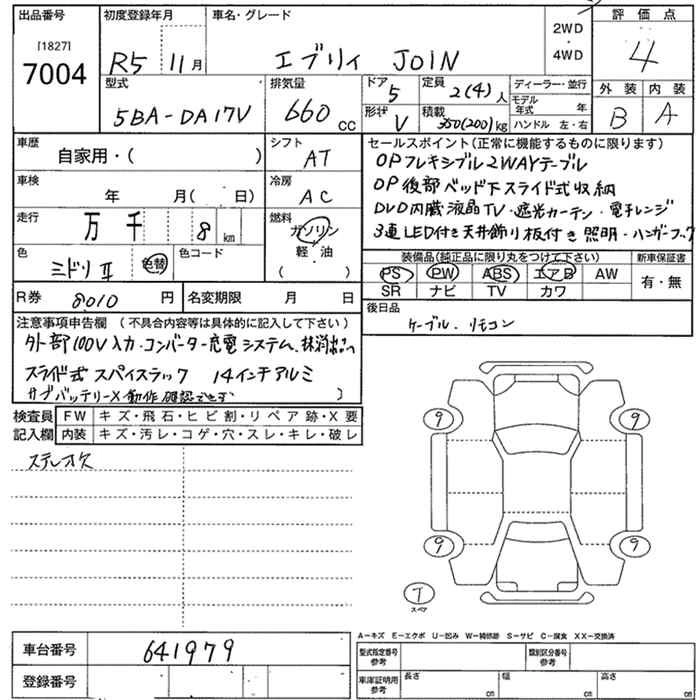 出品番号 初度登録年月 車名・グレード 評価点
[1827]
7004 R5 11月 エブリィ JOIN 2WD 4WD 4
型式 排気量 ドア 5 定員 2(4)人 ディーラー・並行 外装 内装
5BA-DA17V 660cc 形状 V 積載 350(200)kg モデル年式 年 B A
ハンドル 左・右
車歴 シフト セールスポイント(正常に機能するものに限ります)
自家用・( ) AT OPフレキシブル2WAYテーブル
車検 年 月( 日) 冷房 AC OP後部ベッド下スライド式収納
走行 万 千 8km 燃料 DVD内蔵液晶TV・遮光カーテン・電子レンジ
ガソリン 3連LED付き天井飾り板付き照明・ハンガーフック
色 色コード 軽・油 装備品(純正品に限り丸をつけて下さい) 新車保証書
ミドリII 色替 ( ) PS PW ABS エアB AW 有・無
SR ナビ TV カワ
R券 8010円 名変期限 月 日 後日品
注意事項申告欄 (不具合内容等は具体的に記入して下さい) ケーブル、リモコン
外部100V入力・コンバーター充電システム、
スライド式 スパイスラック 14インチアルミ
サブバッテリーX動作確認できず )
検査員 FW キズ・飛石・ヒビ割・リペア跡・X要
記入欄 内装 キズ・汚レ・コゲ・穴・スレ・キレ・破レ
ステレオ欠
9 9
9 9
T
スペア
A-キズ E-エクボ U-凹み W-補修跡 S-サビ C-腐食 XX-交換済
車台番号 641979 型式指定番号 参考 類別区分番号 参考
登録番号 車庫証明用 参考 長さ cm 幅 cm 高さ cm